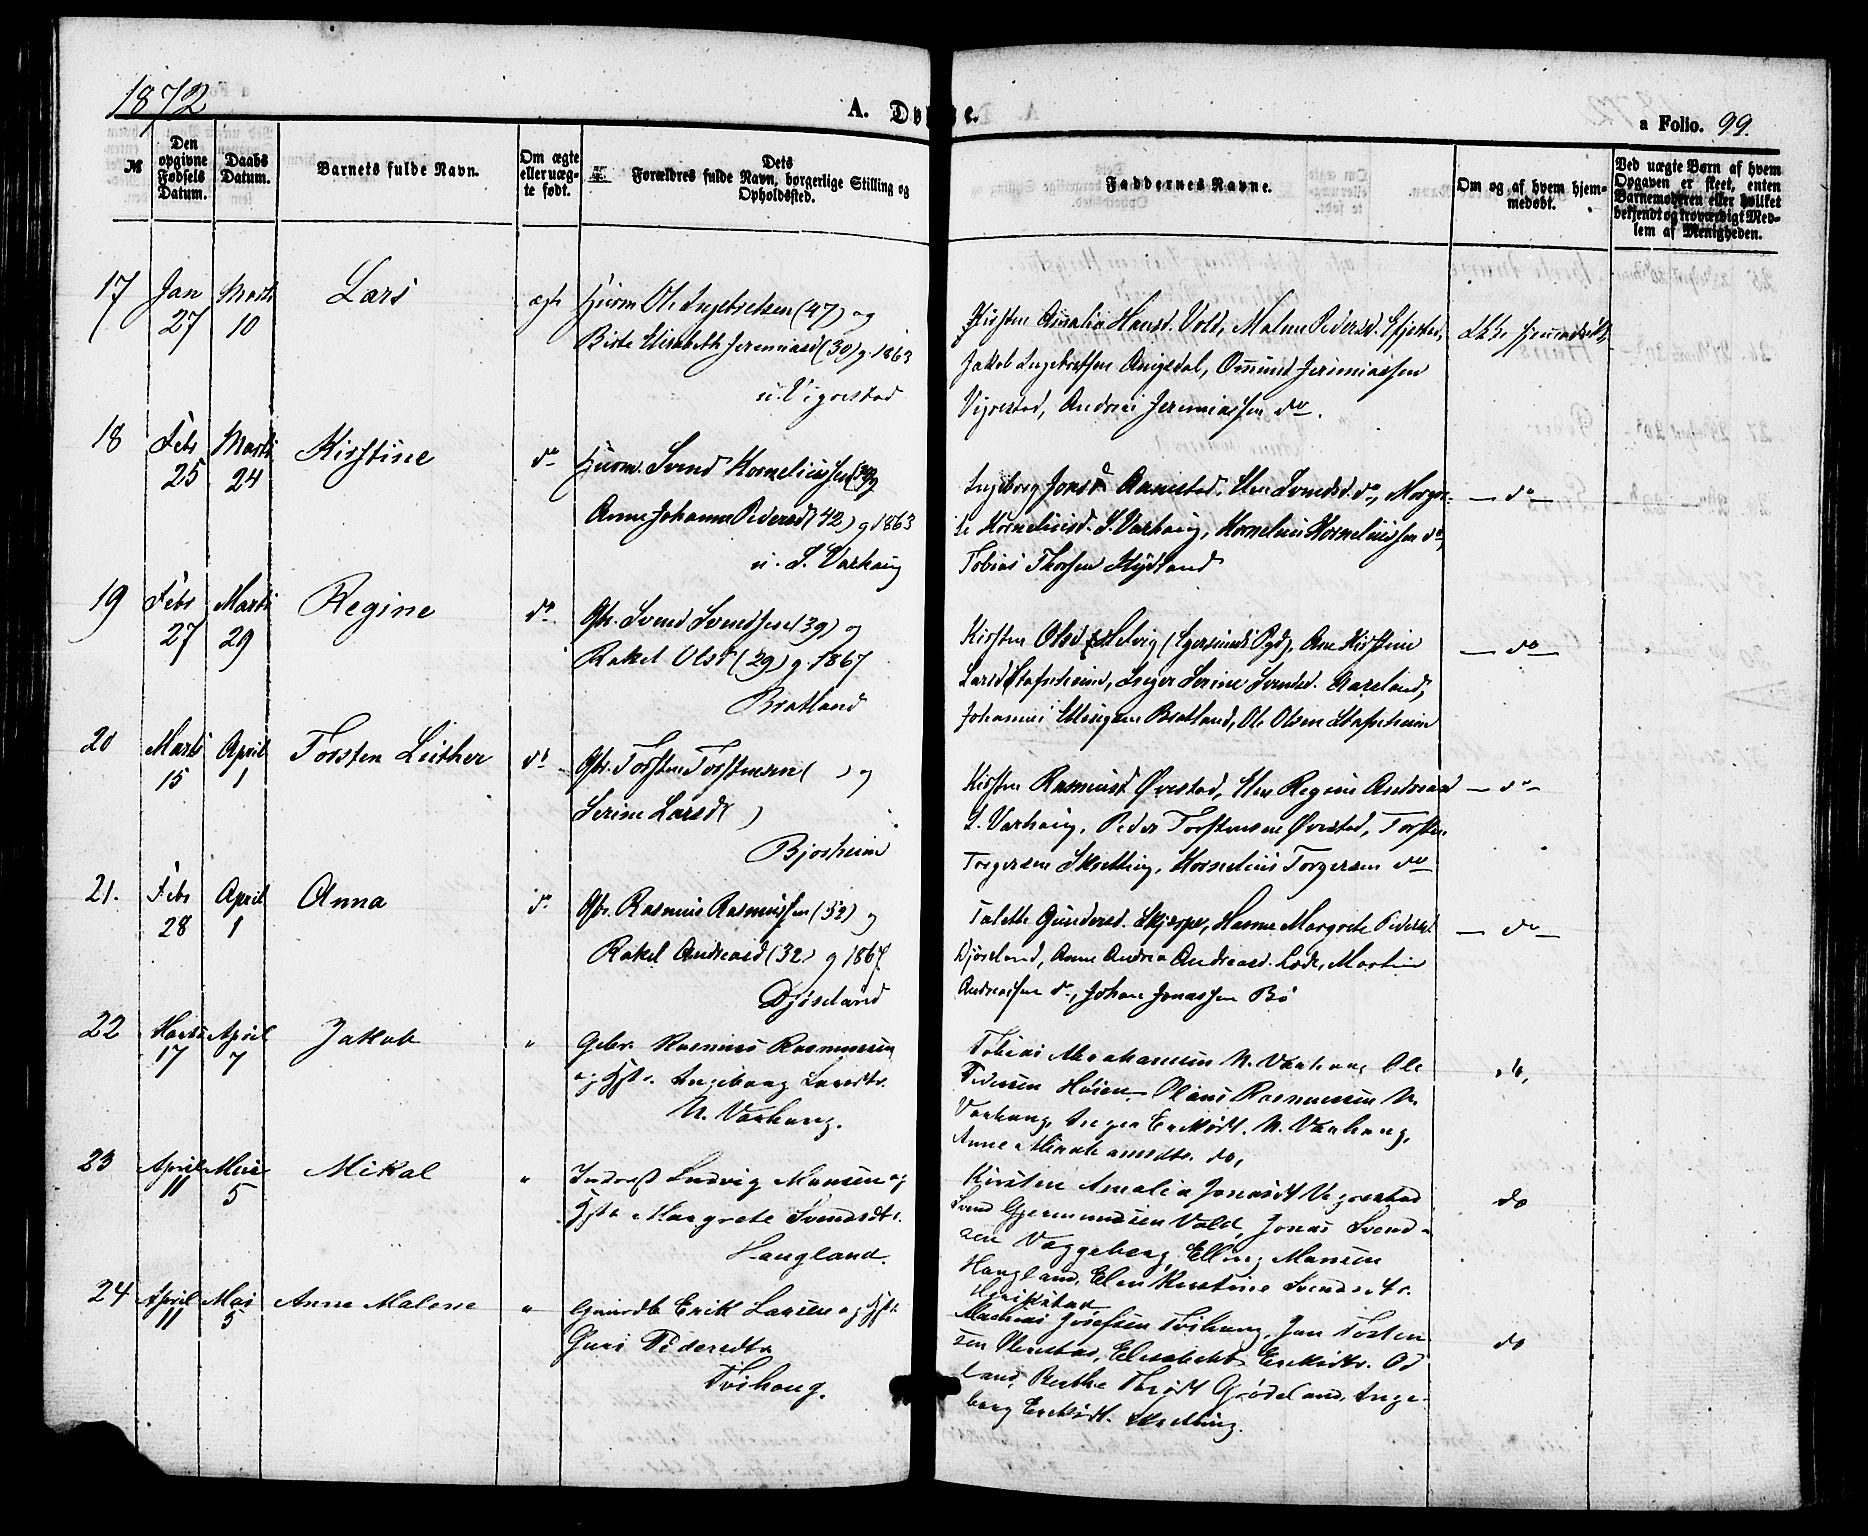 1872
A. Døbte.
a Folio. 99.
№
Den opgivne Fødsels Datum.
Daabs Datum.
Barnets fulde Navn.
Om ægte eller uægte født.
Dets Forældres fulde Navn, borgerlige Stilling og Opholdssted.
Faddernes Navne.
Om og af hvem hjemmedøbt.
Ved uægte Børn af hvem Opgaven er skeet, enten Barnemoderen eller hvilket bekjendt og troværdigt Medlem af Menigheden.
17 Jan 27 Marts 10 Lars ægte
Huusm. Ole Ingebretsen (47) og
Birte Elisabeth Jeremiasd (30) g. 1863
u. Vigrestad
Kirsten Amalia Hansd. Vold, Malene Pedersd.
Jakob Ingebretsen Aniksdal, Omund Jeremiassen
Vigrestad, Andreas Jeremiassen do.
Ikke hjemmedøbt
18 Febr 25 Marts 24 Kirstine do
Huusm. Svend Korneliussen og
Anne Johanne Pedersd (42) g 1863
u. S. Varhaug
Ingeborg Jonsd Aanestad, Elen Svendsd. do, Margre-
te Korneliusd. S. Varhaug, Kornelius Korneliussen do,
Tobias Thorsen
— do —
19 Febr 27 Marts 29 Regine do
Gbr. Svend Svendsen (39) og
Rakel Olsd (29) g. 1867
Bratland
Kirsten Olsd Helvig (Egersunds Pgd), Ane Kirstine
Larsd Stafnheim, Inger Serine Svendsd. Aareland,
Johannes Ellingsen Bratland, Ole Olsen Stafnheim
— do —
20 Marts 15 April 1 Torsten Luther do
Gbr. Torsten Torstensen ( ) og
Serine Larsd ( )
Bjorheim
Kirsten Rasmusd Øvrestad, Elen Regine Andreasd
S. Varhaug, Peder Torstensen Øvrestad, Torsten
Torgersen Skretting, Kornelius Torgersen do
— do —
21. Febr 28 April 1 Anna do
Gbr. Rasmus Rasmussen (52) og
Rakel Andreasd (32) g 1867
Djøseland
Talette Gundersd. Skjerpe, Hanne Margrete Pedersd
Djøseland, Anne Andrea Andreasd. Lode, Martin
Andreassen do, Johan Jonassen Bø
— do —
22 Marts 17 April 7 Jakob "
Gbr. Rasmus Rasmussen
og Hst. Ingeborg Larsdtr.
N. Varhaug.
Tobias Abrahamsen N. Varhaug Ole
Pedersen Høien, Olaus Rasmussen N.
Varhaug, Inger Eriksdt. N. Varhaug,
Anne Abrahamsdtr. do,
do,
23 April 11 Mai 5 Mikal "
Inderst Ludvig Monsen og
Hst. Margrete Svendsdtr.
Haugland.
Kirsten Amalia Jonasdt Vigrestad
Svend Gjermundsen Vold, Jonas Svend-
sen Vaggeberg, Elling Monsen
Haugland, Elen Kirstine Svendsdtr.
do
24 April 11 Mai 5 Anne Malene "
Gaardb. Erik Larsen og Hst.
Guri Pedersdtr
Tvihaug.
Mathias Josefsen Tvihaug, Jon Tosten
sen Obrestad, Elisabeth Eriksdtr. Od
land, Berthe Grødeland, Inge-
borg Eriksdt. Skretting.
do